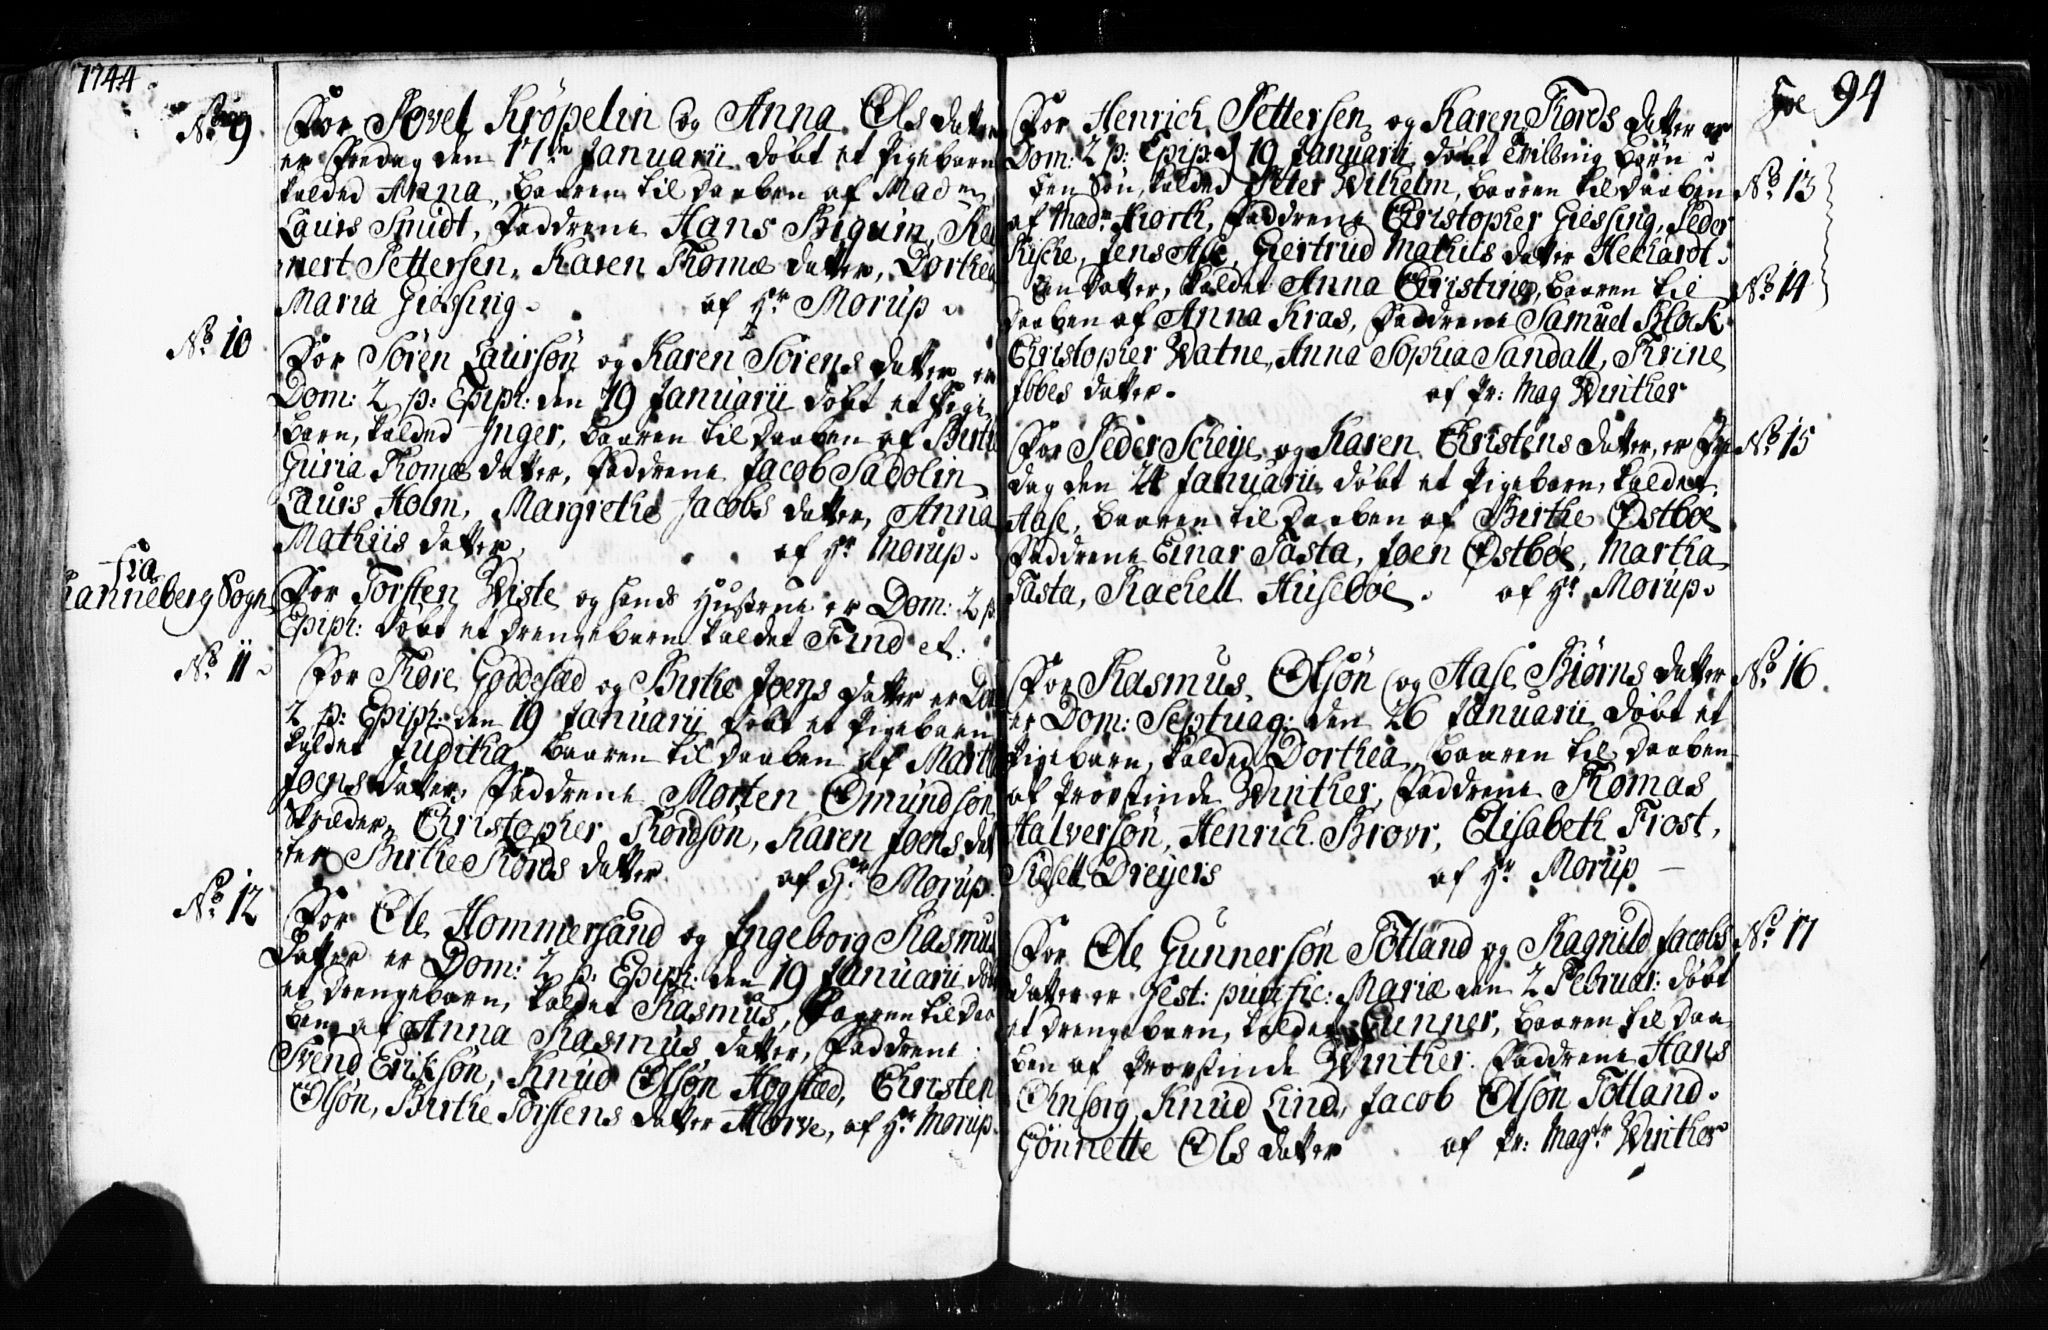 1744
No 9
For Povel Kröpelin og Anna Ols datter
er Fredag den 17de Januarii döbt et Pigebarn
kalded Anna, baaren til Daaben af Madm
Laurs Smidt, Faddrene Hans Biguin,
mert Pettersen, Karen Thomæ datter, Dorthea
Maria Giessing. af Hr Morup.
No 10
For Sören Laursön og Karen Sörens datter er
Dom: 2 p: Epiph: den 19 Januarii döbt et Pige
barn, kalded Inger, baaren til Daaben af Birte
Guria Thomæ datter, Faddrene Jacob Sadolin
Laurs Holm, Margrethe Jacobs datter, Anna
Mathiis datter, af Hr Morup.
fra
Ranneberg Sogn
For Torsten Wiste og hands Hustrue er Dom: 2 p:
Epiph: döbt et drengebarn kaldet Find et:
No 11
For Thore Goddesæd og Birthe Joens datter er Dom
2 p: Epiph: den 19 Januarii döbt et Pigebarn
kaldet Juditha, baaren til Daaben af Martha
Joens datter, Faddrene Morten Omundsön
Skræder, Christopher Thordsön, Karen Joens dat
ter Birthe Thords datter af Hr Morup.
No 12
For Ole Hommersand og Ingeborg Rasmus
Datter er Dom: 2 p: Epiph: den 19 Januarii döbt
et drengebarn, kaldet Rasmus, baaren til Daa
ben af Anna Rasmus datter, Faddrene
Svend Erichsön, Knud Olsön Hogstad, Christen
Olsön, Birthe Torstens datter Horve, af Hr Morup.
Fol 94
For Henrich Pettersen og Karen Thords datter er
Dom: 2 p: Epiph: d 19 Januarii döbt tvilling börn
No 13
en Sön, kalded Petter Wilhelm, baaren til Daaben
af Madm Hiorth, Faddrene Christopher Giessing, Peder
Kische, Jens Ase, Giertrud Mathiis datter Heckardt.
No 14
En datter, kaldet Anna Christine, baaren til
Daaben af Anna Kras, Faddrene Samuel Block
Christopher Watne, Anna Sophia Sandall, Thrine
Ebbes datter. af Pr: Mag Winther
No 15
For Peder Scheije og Karen Christens datter, er Fre
dag den 24 Januarii döbt et Pigebarn, kaldet
Aase, baaren til Daaben af Birthe Østböe
Faddrene Einar Tasta, Joen Østböe, Martha
Tasta, Rachell Huseböe. af Hr Morup.
No 16
For Rasmus Olsön og Aase Biörns datter
er Dom: Septuag: den 26 Januarii döbt et
Pigebarn, kalded Dorthea, baaren til Daaben
af Provstinde Winther, Faddrene Thomas
Halversön, Henrich Brovr, Elisabeth Frost,
Sidsell Dreyers af Hr Morup
No 17
For Ole Gunnersön Totland og Ragnild Jacobs
datter er Fest: purific: Mariæ den 2 Februar: döbt
et drengebarn, kaldet Gunner, baaren til Daa
ben af Provstinde Winther. Faddrene Hans
Ohnsorg, Knud Lind, Jacob Olsön Totland.
Gönnette Ols datter af Pr: Magtr Winther